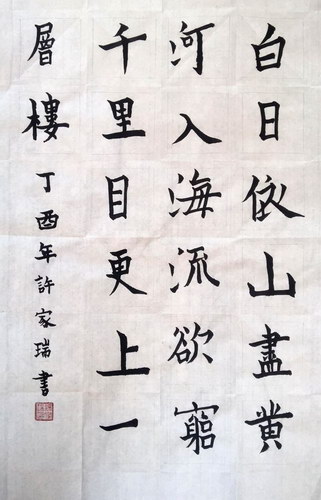 白日依山盡黄
河入海流欲窮
千里目更上一
層樓
丁酉年許家瑞書